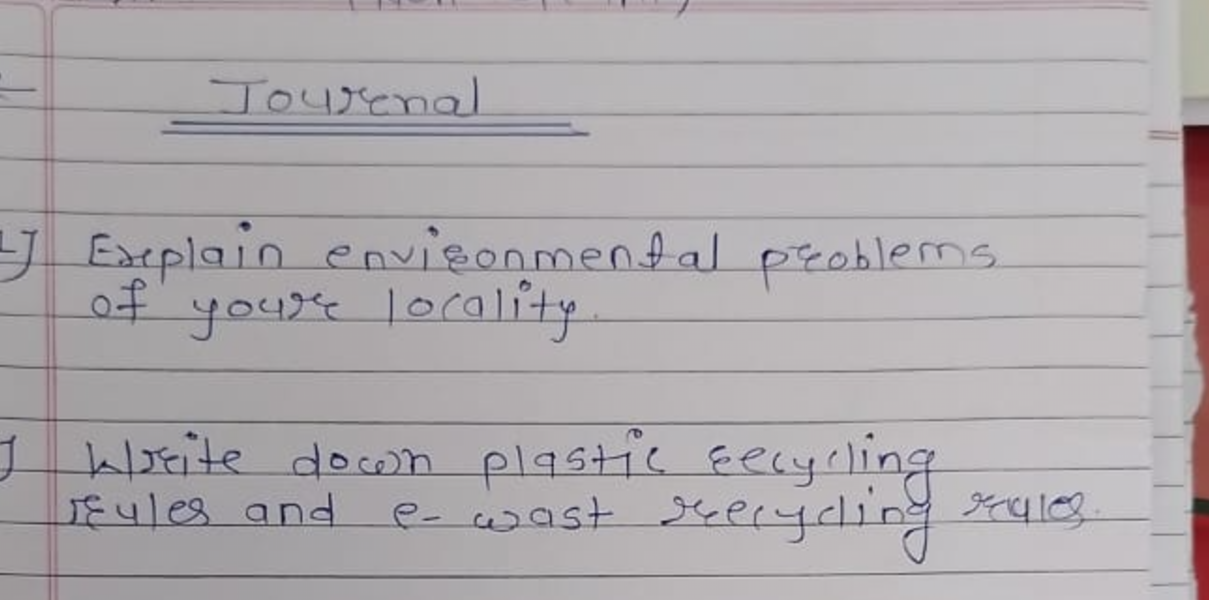 Journal
1] Explain environmental problems
of your locality.
] Write down plastic recycling
rules and e-wast recycling rules.